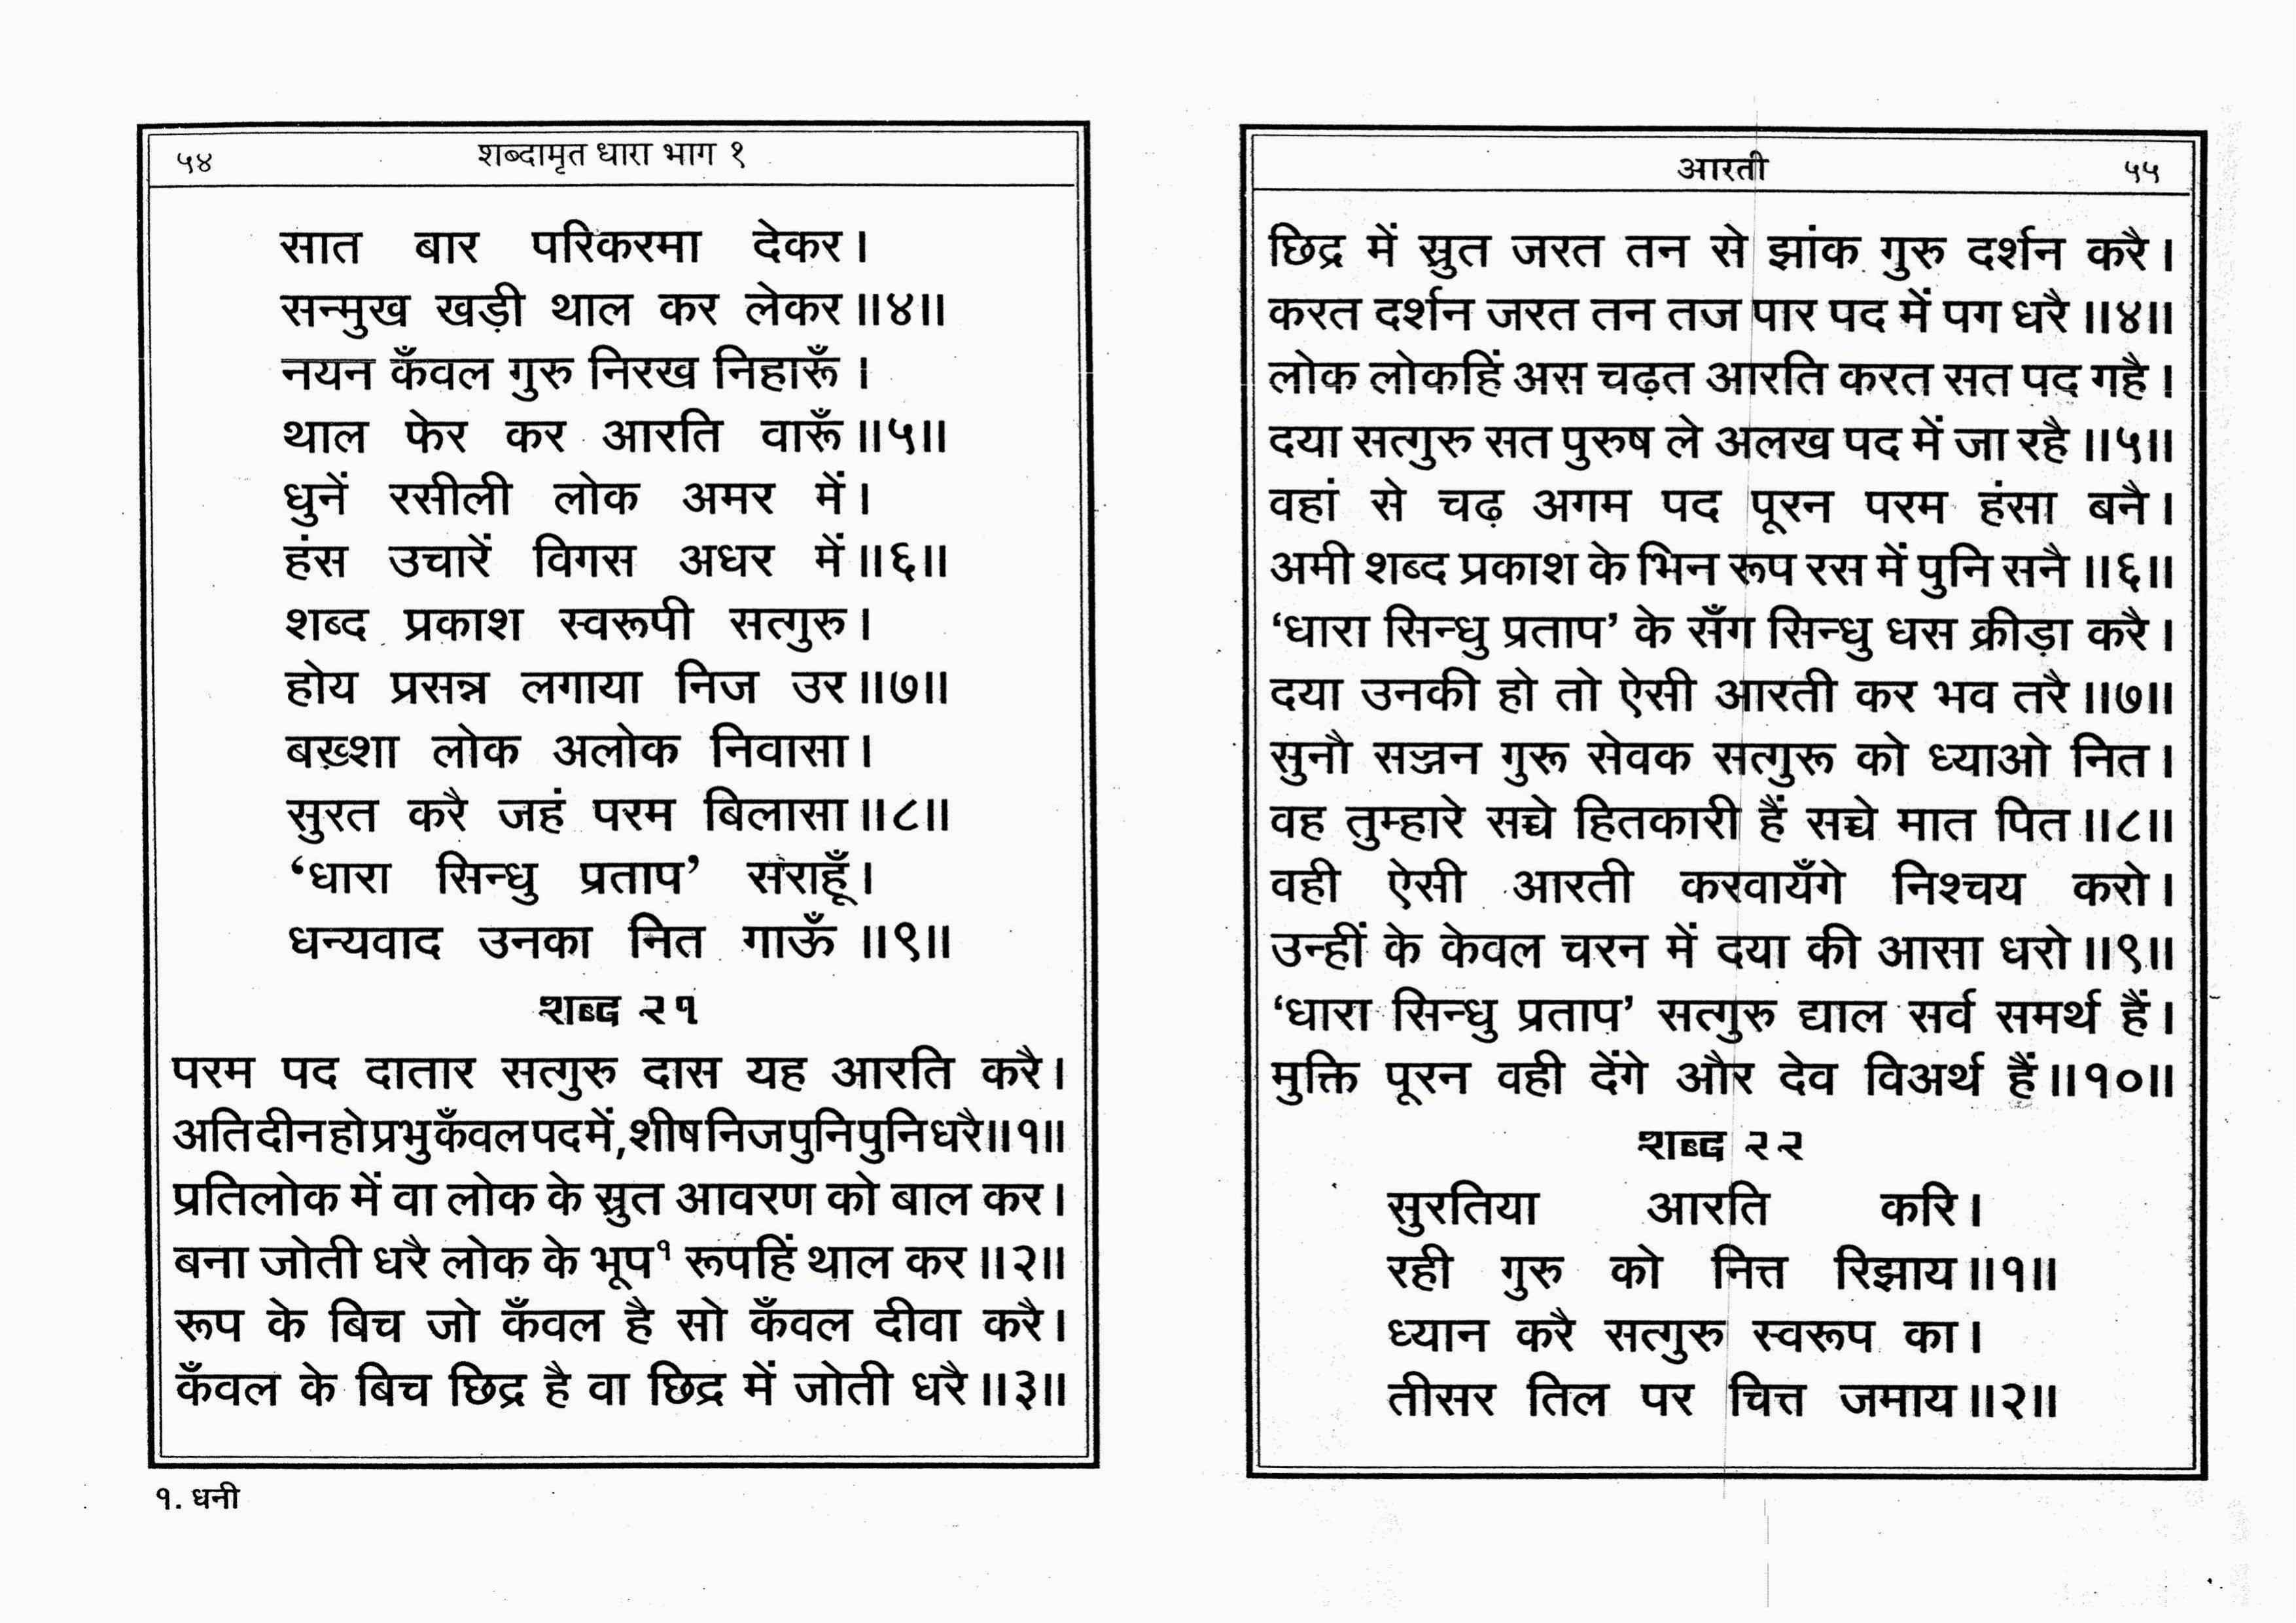 ५४ शब्दामृत धारा भाग १
सात बार परिकरमा देकर।
सन्मुख खड़ी थाल कर लेकर॥४॥
नयन कँवल गुरु निरख निहारूँ।
थाल फेर कर आरति वारूँ॥५॥
धुनें रसीली लोक अमर में।
हंस उचारें विगस अधर में॥६॥
शब्द प्रकाश स्वरूपी सत्गुरु।
होय प्रसन्न लगाया निज उर॥७॥
बख़्शा लोक अलोक निवासा।
सुरत करै जहं परम बिलासा॥८॥
‘धारा सिन्धु प्रताप’ सराहूँ।
धन्यवाद उनका नित गाऊँ॥९॥
शब्द २१
परम पद दातार सत्गुरु दास यह आरति करै।
अति दीन हो प्रभु कँवल पद में, शीष निज पुनि पुनि धरै॥१॥
प्रतिलोक में वा लोक के स्रुत आवरण को बाल कर।
बना जोती धरै लोक के भूप१ रूपहिं थाल कर॥२॥
रूप के बिच जो कँवल है सो कँवल दीवा करै।
कँवल के बिच छिद्र है वा छिद्र में जोती धरै॥३॥
१. धनी
आरती ५५
छिद्र में स्रुत जरत तन से झांक गुरु दर्शन करै।
करत दर्शन जरत तन तज पार पद में पग धरै॥४॥
लोक लोकहिं अस चढ़त आरति करत सत पद गहै।
दया सत्गुरु सत पुरुष ले अलख पद में जा रहै॥५॥
वहां से चढ़ अगम पद पूरन परम हंसा बनै।
अमी शब्द प्रकाश के भिन रूप रस में पुनि सनै॥६॥
‘धारा सिन्धु प्रताप’ के सँग सिन्धु धस क्रीड़ा करै।
दया उनकी हो तो ऐसी आरती कर भव तरै॥७॥
सुनौ सज्जन गुरू सेवक सत्गुरू को ध्याओ नित।
वह तुम्हारे सच्चे हितकारी हैं सच्चे मात पित॥८॥
वही ऐसी आरती करवायँगे निश्चय करो।
उन्हीं के केवल चरन में दया की आसा धरो॥९॥
‘धारा सिन्धु प्रताप’ सत्गुरु द्याल सर्व समर्थ हैं।
मुक्ति पूरन वही देंगे और देव विअर्थ हैं॥१०॥
शब्द २२
सुरतिया आरति करि।
रही गुरु को नित्त रिझाय॥१॥
ध्यान करै सत्गुरु स्वरूप का।
तीसर तिल पर चित्त जमाय॥२॥